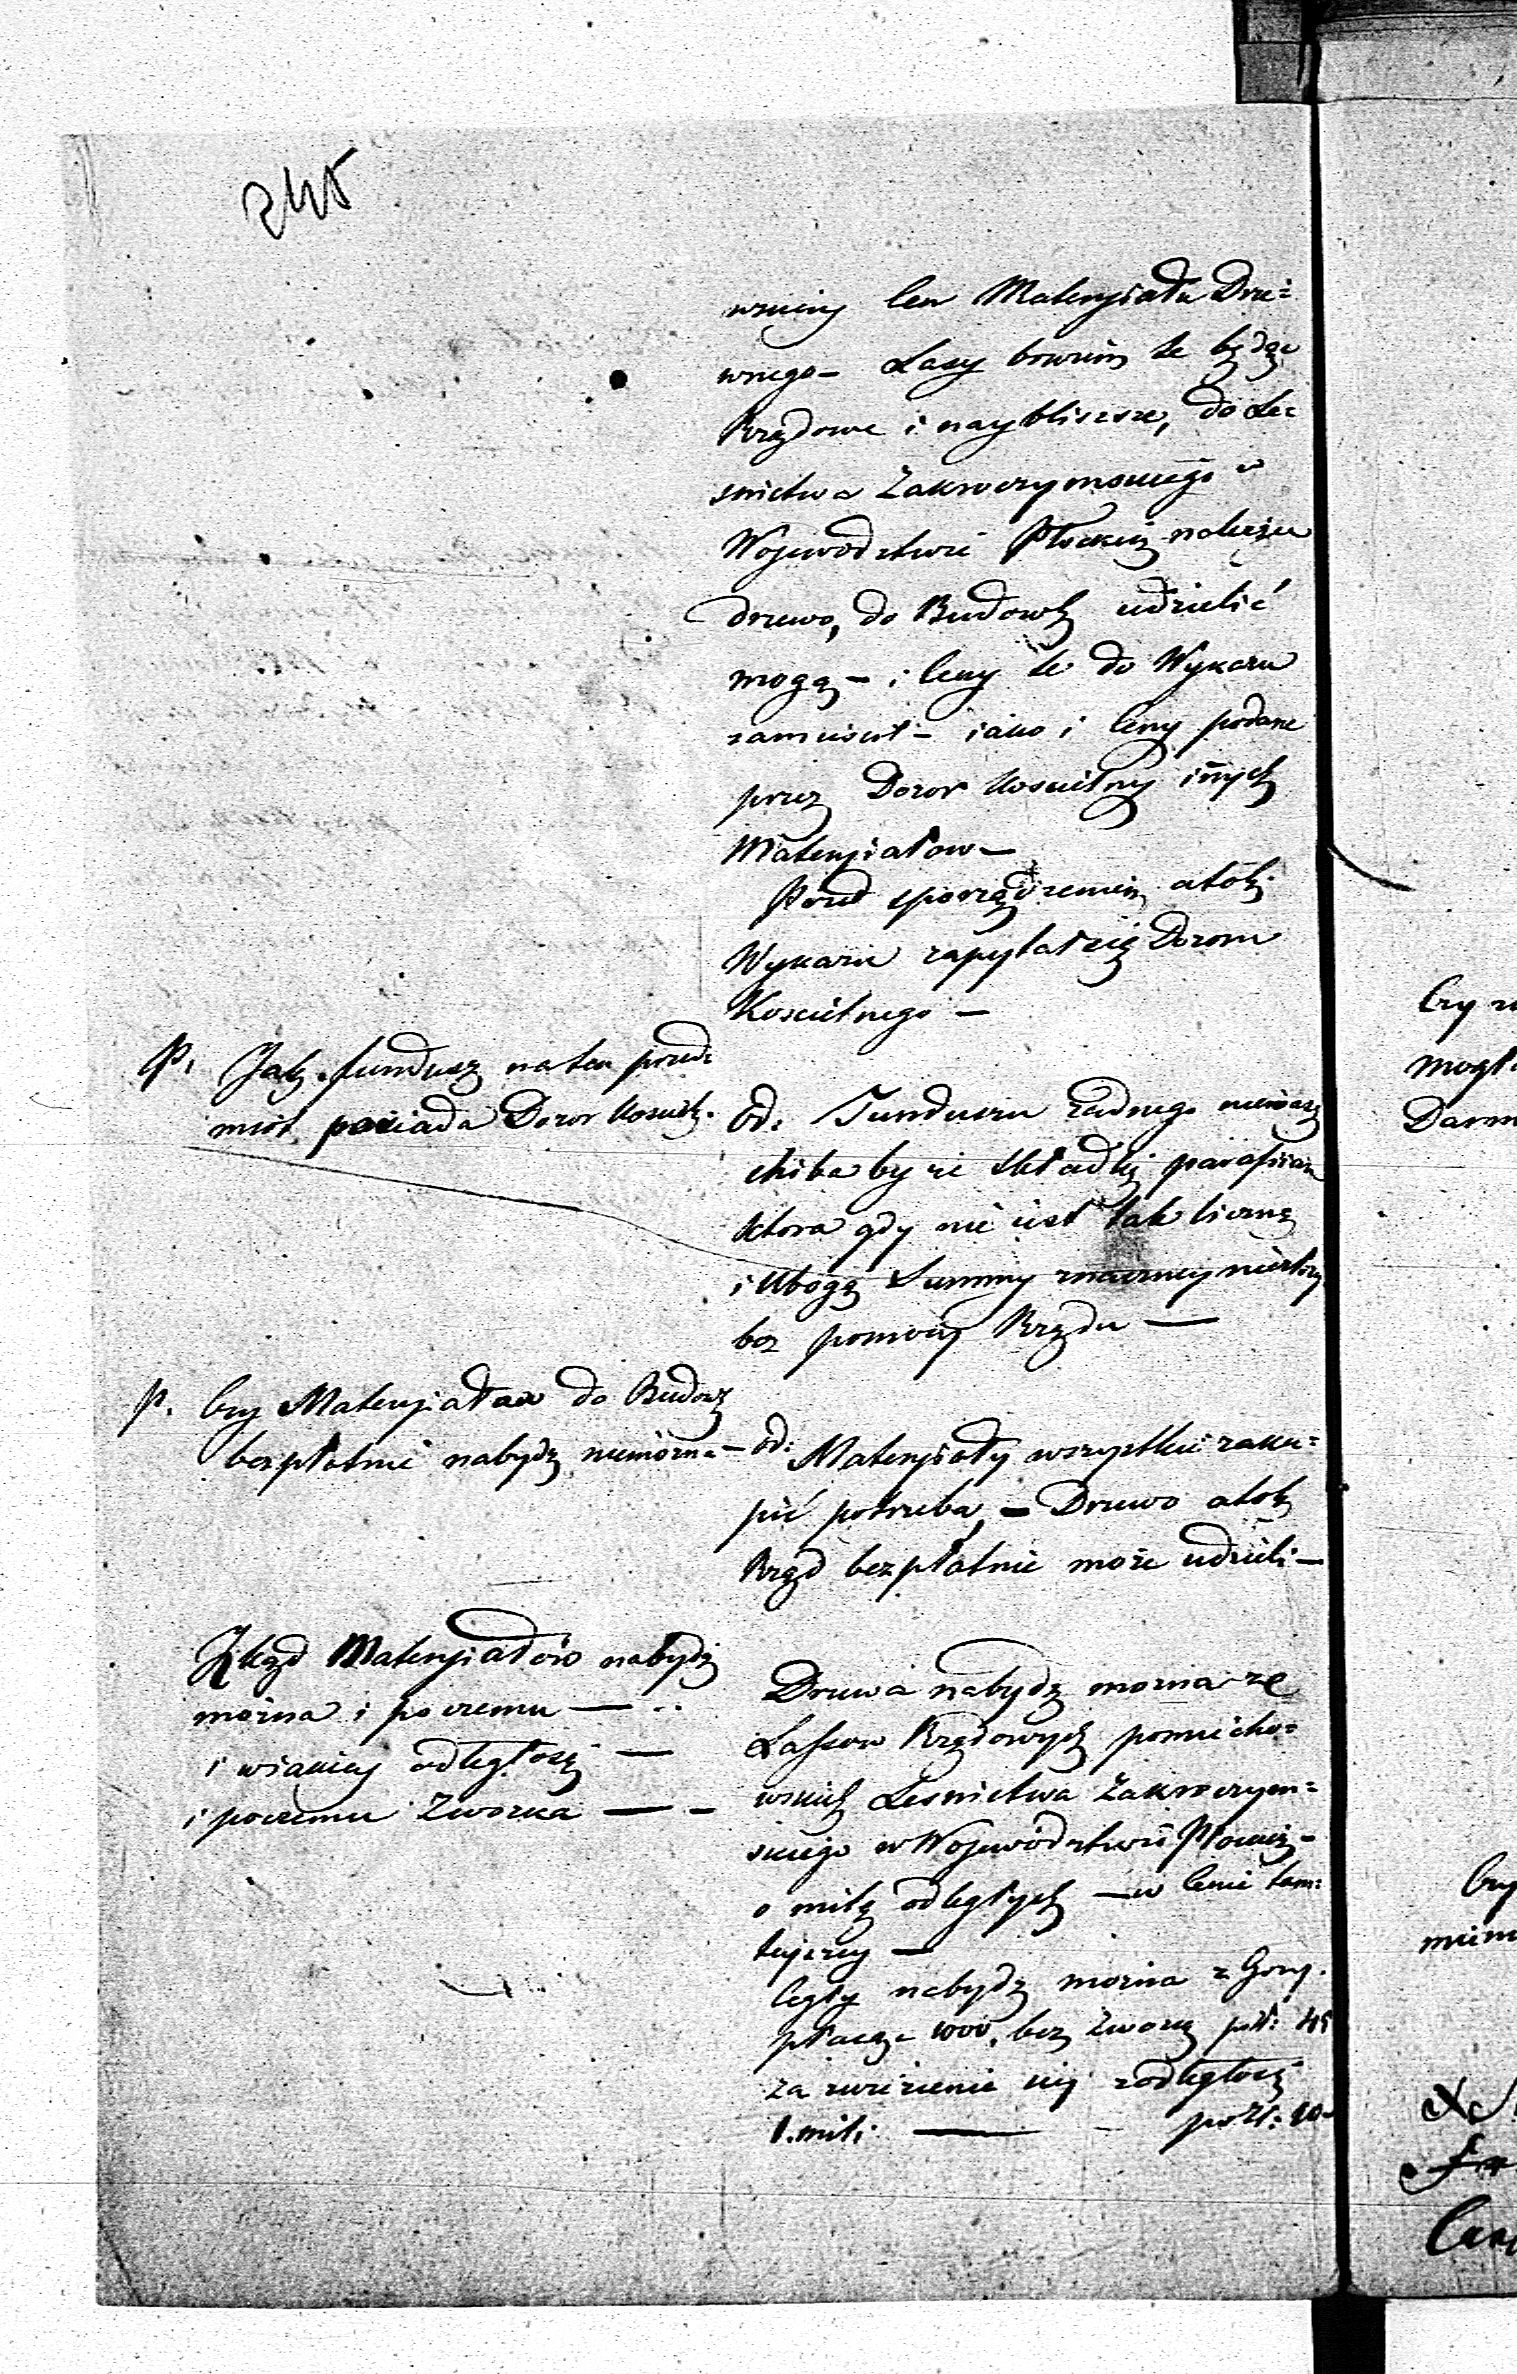 245
wniey Cen Materyiału Drze=
wnego – Lasy bowiem te będąc
Rządowe i naybliższe, do Le=
snictwa Zakroczymskiego w
Wojewodztwie Płockim należące
drzewo, do Budowli udzielić
mogą – i Ceny te do Wykazu
zamieścił – iako i Ceny podane
przez Dozor Kościelny inych
Materyiałow –
Przed sporządzeniem atoli
Wykazu zapytał się Dozoru
Kościelnego –
P. Jaki fundusz na ten przed=
miot posiada Dozor Kościel.
Od: Funduszu żadnego niema
chiba by ze składki parafian
ktora gdy nie iest tak liczną
i Ubogą Summy znaczney niezłoży
bez pomocy Rządu —
P. Czy Materyiałow do Budowli
bezpłatnie nabydź niemożna –
od: Materyiały wszystkie zaku=
pić potrzeba, – Drzewo atoli
Rząd bezpłatnie może udzieli –
Zkąd Materyiałów nabydź
można i po czemu — ..
i w iakiey odległości —
i po czemu Zwozka — –
Drzewa nabydź można ze
Lassow Rządowych pomiecho=
wskich Lesnictwa Zakroczym=
skiego w Wojewodztwie Płockim –
o milę odległych – w Cenie tam=
tejszey —
Cegły nabydź można z Gory.
płacąc 1000, bez Zwozki po zł: 45
za zwiezienie iey z odległości
1. mili — – po zł: 10
Czy
mogł
Czy